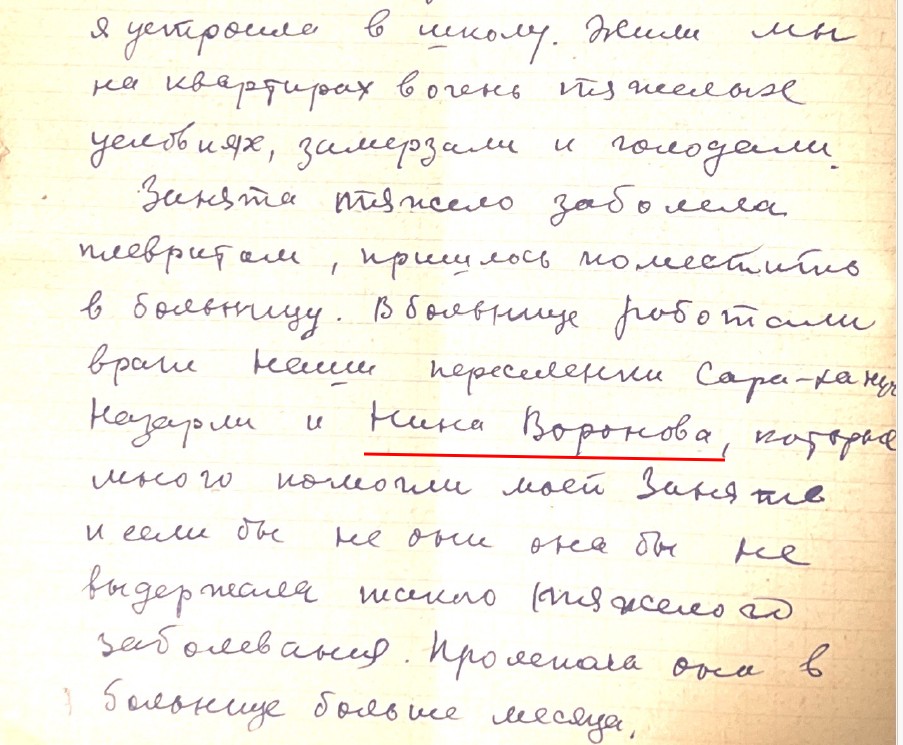 я устроила в школу. Жили мы
на квартирах в очень тяжелых
условиях, замерзали и голодали.
Зинята тяжело заболела
плевритом, пришлось поместить
в больницу. В больнице работали
врачи наши переселенки Сара-ханум
Назарли и Нина Воронова, которые
много помогли моей Зиняте
и если бы не они она бы не
выдержала такого тяжелого
заболевания. Пролежала она в
больнице больше месяца.